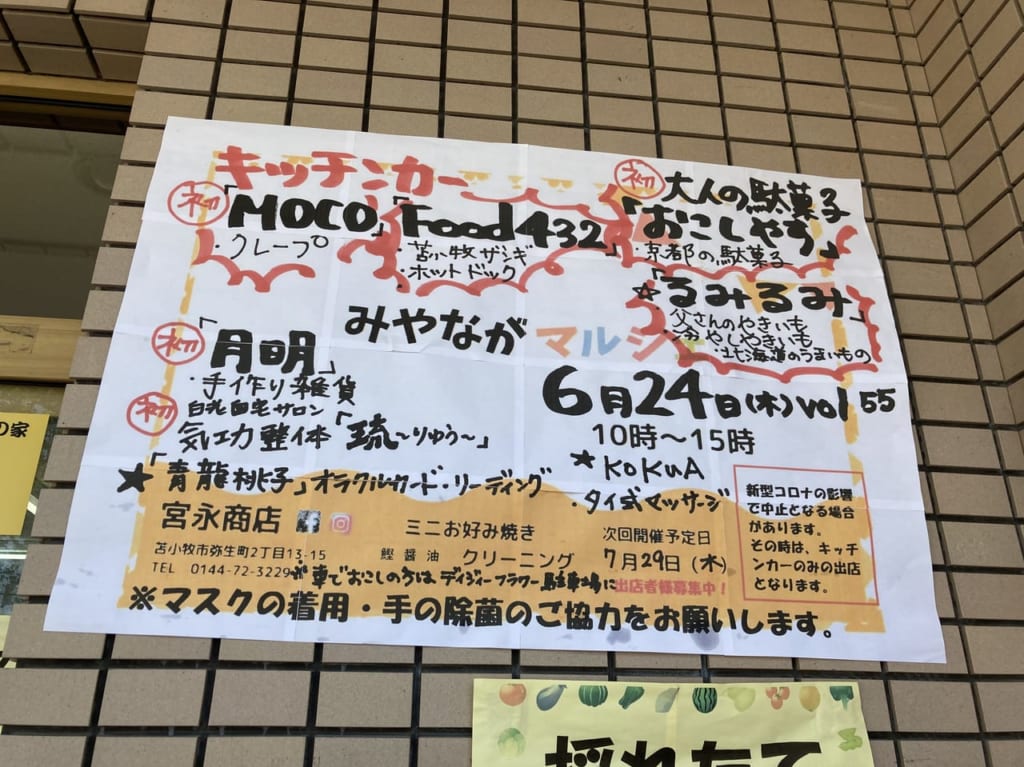 キッチンカー
初「MOCO」
・クレープ
「Food432」
・苫小牧ザンギ
・ホットドック
初 大人の駄菓子
「おこしやす」
・京都の駄菓子
☆「るみるみ」
・父さんのやきいも
・冷やしやきいも
・北海道のうまいもの
みやなが マルシェ
6月24日(木)vol 55
10時～15時
初「月明」
・手作り雑貨
初 白老自宅サロン
気功整体「琉～りゅう～」
★「青龍桃子」オラクルカード・リーディング
★KOKUA
・タイ式マッサージ
宮永商店
苫小牧市弥生町2丁目13-15
TEL 0144-72-3229
ミニお好み焼き
鰹醤油 クリーニング
次回開催予定日
7月29日(木)
出店者様募集中!
車でおこしの方はデイジーフラワー駐車場に
新型コロナの影響
で中止となる場合
があります。
その時は、キッチ
ンカーのみの出店
となります。
※マスクの着用・手の除菌のご協力をお願いします。
の家
採れたて